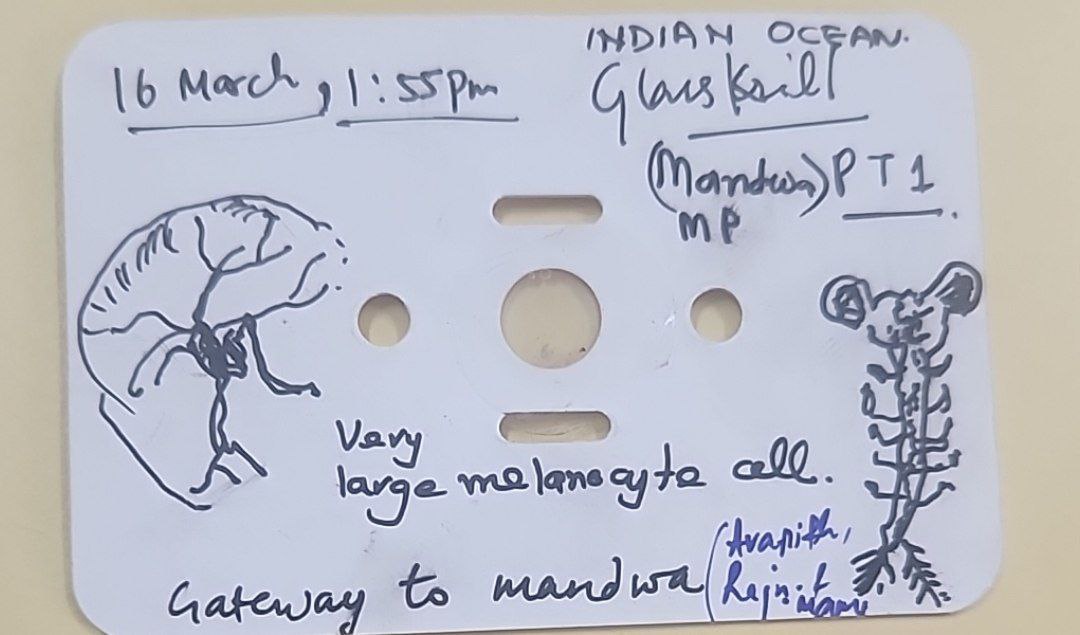 16 March, 1:55pm
INDIAN OCEAN.
Glass Krill
(Mandwa) PT1.
MP
Very
large melanocyte cell.
Gateway to mandwa
Rajnit